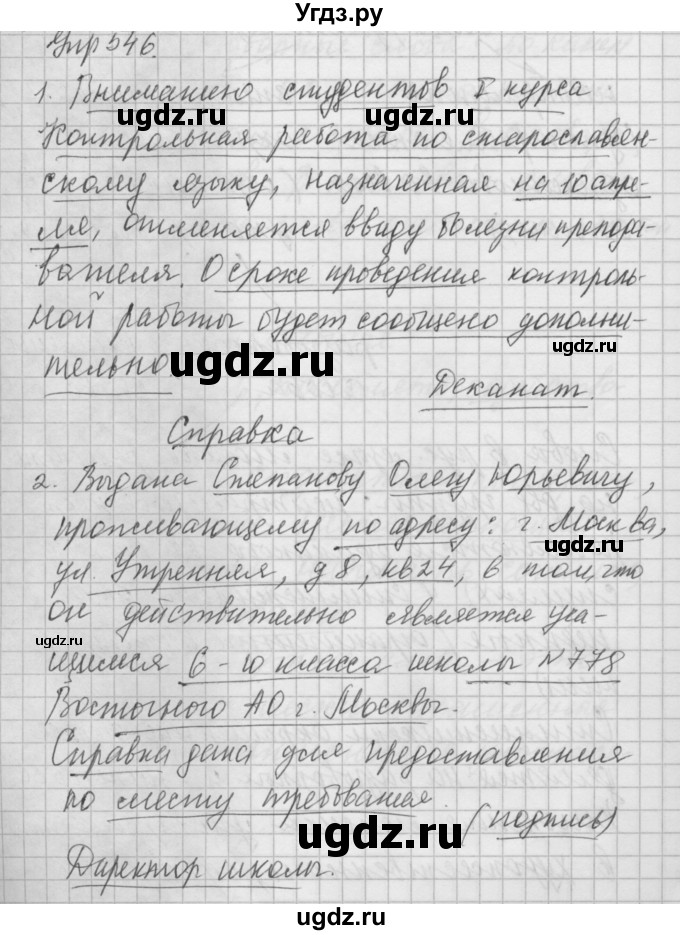 УгдуРу.ru
Упр 546.
1. Вниманию студентов I курса.
ugdz.ru ugdz.ru
Контрольная работа по старославян-
скому языку, назначенная на 10 апре-
ля, отменяется ввиду болезни препода-
вателя. О сроке проведения контроль-
ной работы будет сообщено дополни-
тельно. ugdz.ru ugdz.ru
Деканат.
Справка
2. Выдана Степанову Олегу Юрьевичу,
ugdz.ru
проживающему по адресу: г. Москва,
ugdz.ru
ул. Утренняя, д 8, кв 24, в том, что
он действительно является уча-
ugdz.ru
щимся 6-ю класса школы №778
Восточного АО г. Москвы.
Справка дана для предоставления
ugdz.ru
по месту требования.
ugdz.ru
(подпись)
Директор школы.
ugdz.ru
ugdz.ru